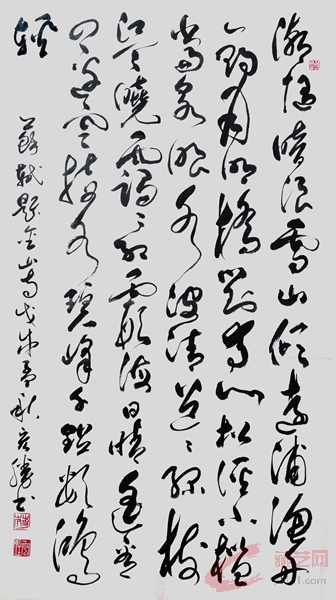 潮随暗浪雪山倾远浦渔舟
钓月明桥对寺门松径小槛
当泉眼石波清迢〻绿树
江天晓霭〻红霞海日晴遥望
四边云接水碧峰千点数鸥
轻
苏轼题金山寺戊戌孟秋胜书
藏艺网